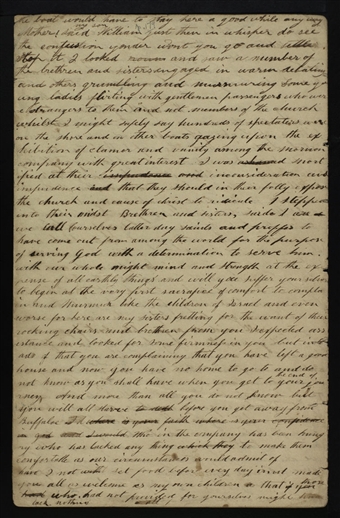 the boat would have to stay here a good while any way
Mother, said William just then in whisper do see
the confusion yonder wont you go and settle
it. I looked round and saw a number of
the brethren and sisters engaged in warm debating
and others grumbling and murmuring some of
ung ladies flirting with gentlemen passengers who were
strangers to them and not members of the church
whilst I might safely say hundreds of spectators were
on the shore and in other boats gazing upon the ex
hibition of clamor and vanity among the mormon
company with great interest I was mort
ified at their inconsideration
impudence and that they should in their folly expose
the church and cause of christ to ridicule I stepped
into their midst Brethren and sisters, said I
we call ourselves Latter day saints and profess to
have come out from among the world for the purpose
of serving God with a determination to serve him
with our whole might mind and strength at the ex
pense of all earthly things and will you suffer yourselves
to begin at the very first sacrafice of comfort to compla
in and murmur like the children of Israel and even
worse for here are my sisters fretting for the want of their
rocking chairs and brethren from you I expected ass
istance and looked for some firmness in you but inste
ad of that you are complaining that you have left a good
house and now you have no home to go to and do
not know as you shall have when you get to your jou
end of
rney And more than all you do not know but
you will all before you get away from
Buffalo
Who in the company has been hung
ry who has lacked any thing to make them
comfortable as our circumstances would admit of
have I not set food before you every day and made
you all as welcome as my own children that
who had not provided for yourselves might
lack nothing